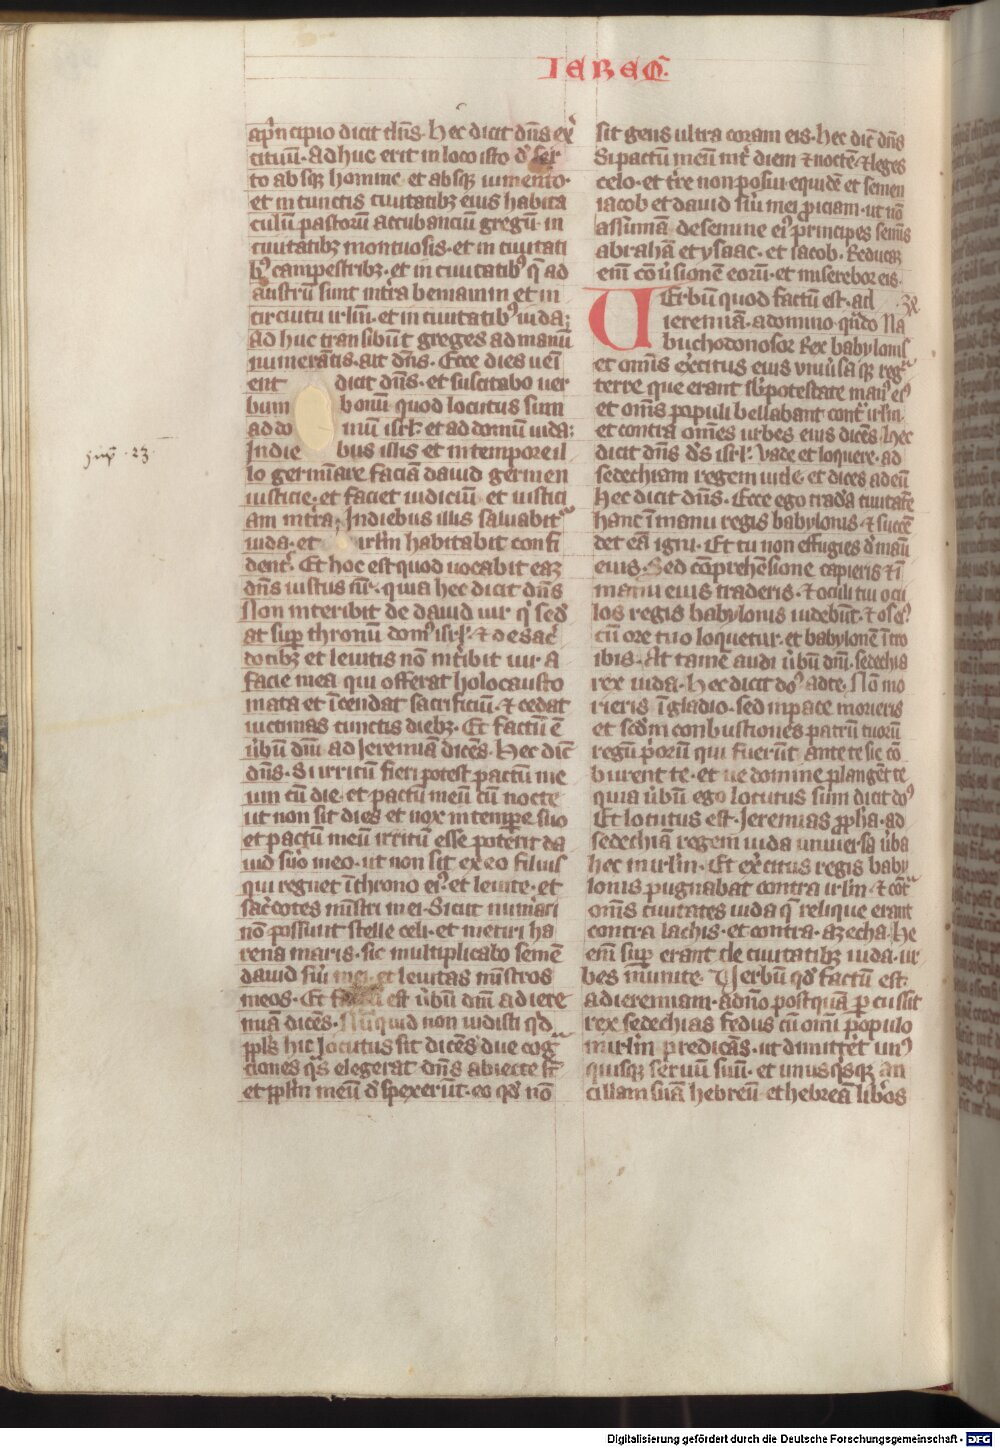 IEREM̄.
ap̄ncipio dicit dn̄s. Hec dicit dn̄s ex̾
cituū. Adhuc erit in loco isto d̾ser
to absq; homine et absq; iumento.
et in cunctis ciuitatibꝫ eius habita
culū pastorū accubanciū gregū in
ciuitatibꝫ montuosis. et in ciuitati
bꝫ campestribꝫ. et in ciuitatibꝰ q̄ ad
austrū sunt int̄ra beniamin et in
circuitu irl̄m. et in ciuitatibꝰ iuda;
Adhuc transibūt greges ad manū
numerātis. ait dn̄s. Ecce dies ueī
ent dicit dn̄s. et suscitabo uer
bum bonū quod locutus sum
ad do mū isrl̄. et ad domū iuda;
Indie bus illis et in tempore il
lo germīare faciā dauid germen
iusticie. et faciet iudiciū et iustici
am int̄ra. Indiebus illis saluabit᷑
iuda. et irl̄m habitabit confi
dent̾. Et hoc est quod uocabit eaꝫ
dn̄s iustus n̄r. quia hec dicit dn̄s
Non interibit de dauid uir q̾ sed̾
at sup̱ thronū domꝰ isrl̄. ⁊ de sac̾
dotibꝫ et leuitis nō int̾ibit uir a
facie mea qui offerat holocausto
mata et īcendat sacrificiū. ⁊ cedat
uictimas cunctis diebꝫ. Et factū ē
ūbū dn̄i ad Jeremiā dicēs. Hec dic̄
dn̄s. Si irritū fieri potest pactū me
um cū die. et pactū meū cū nocte
ut non sit dies et nox in temp̱e suo
et pactū meū irritū esse poterit da
uid s̾uo meo. ut non sit ex eo filius
qui regnet ī throno eiꝰ. et leuite. et
sac̾dotes mīstri mei. Sicut num̾ari
nō possunt stelle celi. et metiri ha
rena maris. sic multiplicabo semē
dauid s̾ui mei. et leuitas mīstros
meos. Et factū est ūbū dn̄i ad iere
miā dicēs. Nūquid non uidisti qd̾
ppl̄s hic locutus sit dicēs due cog
tiones q̄s elegerat dn̄s abiecte st̄
et ppl̄m meū d̾spexerūt. eo qd̾ nō
sit gens ultra coram eis. Hec dic̄ dn̄s
Si pactū meū int̾ diem ⁊ noctē. ⁊ leges
celo. et t̾re non posui. equidē et semen
iacob et dauid s̾ui mei ꝓiciam. ut nō
assumā de semine eiꝰ principes semīs
abrahā et ysaac. et iacob. Reducaꝫ
eīm cōu̾sionē eorū. et miserebor eis.
Uerbū quod factū est. ad .34
ieremiā. a domino. qn̄do Na
buchodonosor Rex babylonis
et om̄s ex̾citus eius uniūsaqꝫ reg᷑
terre que erant sb̾ potestate manꝰ eiꝰ
et om̄s populi bellabant cont᷑ irl̄m.
et contra om̄es urbes eius dicēs. Hec
dicit dn̄s d̾s isrl̄. Vade et loquere. ad
sedechiam regem iude. et dices ad eū
hec dicit dn̄s. Ecce ego trada ciuitatē
hanc ī manu regis babylonis. ⁊ succē
det eā igni. Et tu non effugies d̾ manū
eius. Sed cōprehensione capieris ⁊ ī
manu eius traderis. ⁊ oculi tui ocu
los regis babylonis uidebūt. ⁊ os eiꝰ
cū ore tuo loquetur. et babylonē īttro
ibis. At tamē audi ūbū dn̄i. sedechia
rex iuda. Hec dicit doꝰ ad te. Nō mo
rieris ī gladio. sed in pace morieris
et scd̾m conbustiones patrū tuorū
regū p̾orū qui fuerūt ante te sic cō
burent te. et ue domine plangēt te
quia ūbū ego locutus sum dicit doꝰ
Et locutus est. Jeremias ꝓpha. ad
sedechiā regem iuda uniuersa ūba
hec in irl̄m. Et ex̾citus regis baby
lonis pugnabat contra irl̄m. ⁊ cōt᷑
om̄s ciuitates iuda q̄ relique erant
contra lachis. et contra. azecha. He
eīm sup̱ erant de ciuitatibꝫ iuda. ur
bes munite. Uerbū qd̾ factū est
ad ieremiam. adn̄o postquā percussit
rex sedechias fedus cū omī populo
in irl̄m predicās. ut dimitt̾et unꝰ
quisque seruū suū. et unusqsqꝫ an
cillam suā hebreū et hebreā lib̾os